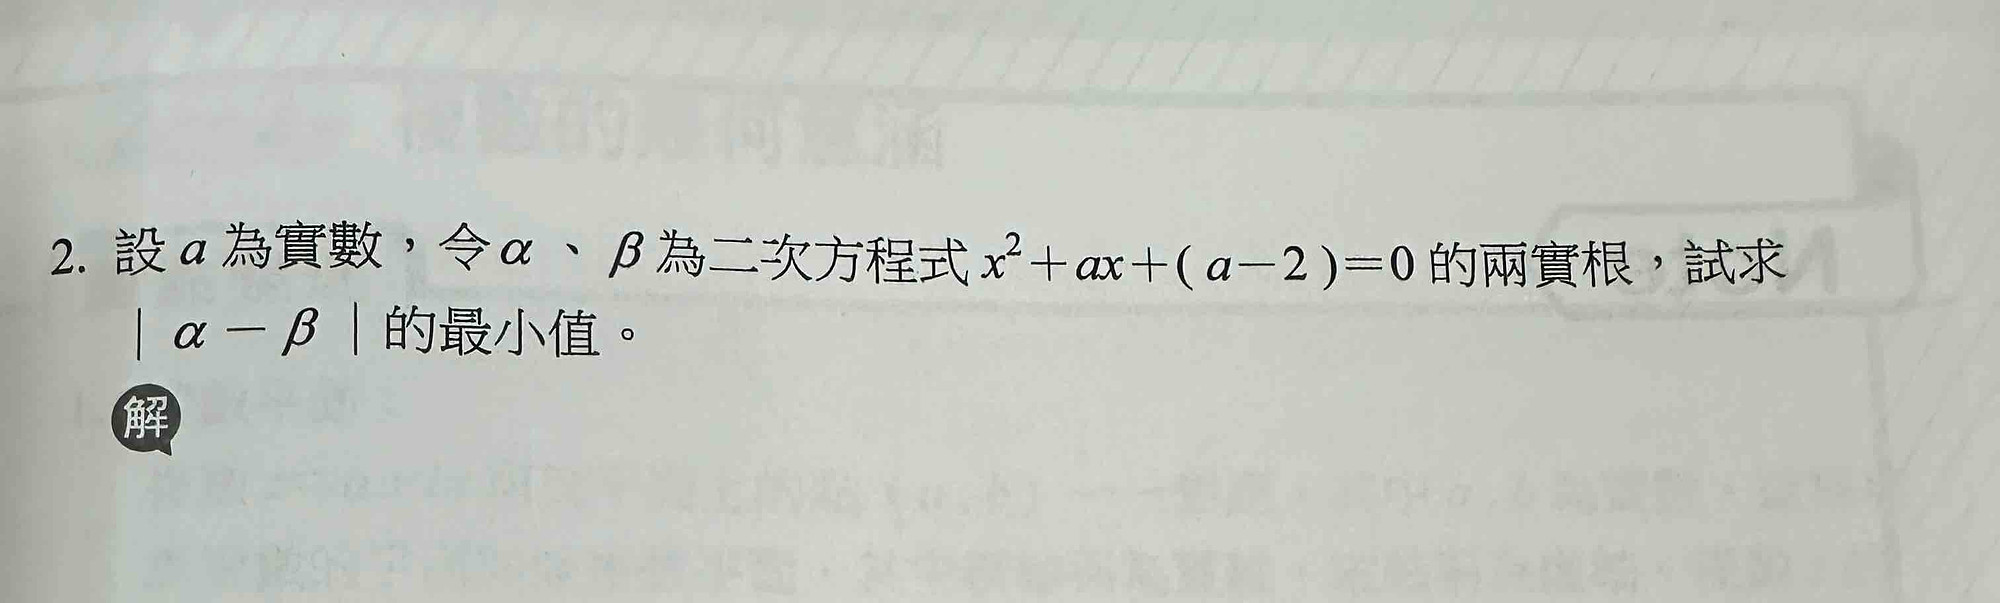 2. 設 a 為實數，令 α 、 β 為二次方程式 x²+ax+( a−2 )=0 的兩實根，試求
| α − β | 的最小值。
解